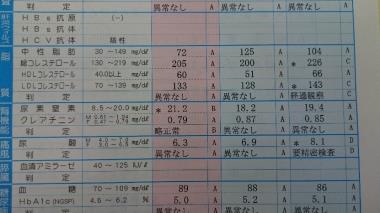 査 判 定 異常なし A 異常なし A 異常なし A
HBs抗原 (-)
HBs抗体
HCV抗体 陰性
判 定
中性脂肪 30~149 mg/dℓ 72 A 125 A 104 A
総コレステロール 130~219 mg/dℓ 205 A 200 A * 226 C
HDLコレステロール 40.0以上 mg/dℓ 60 A 51 A 66 A
LDLコレステロール 70~139 mg/dℓ 133 A 128 A * 143 C
脂質 判 定 異常なし A 異常なし A 経過観察 C
尿素窒素 8.5~20.0 mg/dℓ * 21.2 B 18.2 A 19.4 A
クレアチニン mg/dℓ 0.79 A 0.87 A 0.85 A
腎機能 判 定 略正常 B 異常なし A 異常なし A
尿酸 mg/dℓ 6.3 A 6.9 A * 8.1 D
痛風 判 定 異常なし A 異常なし A 要精密検査 D
血清アミラーゼ 40~125 IU/ℓ
膵臓 判 定
血糖 70~109 mg/dℓ 89 A 88 A 86 A
HbA1c (NGSP) 4.6~6.2 % 5.0 A 5.2 A 5.1 A
糖尿